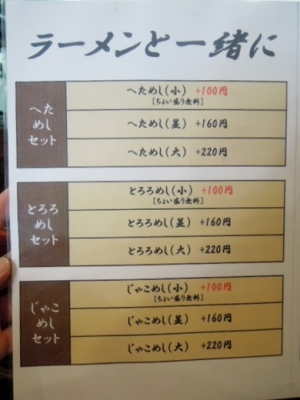 ラーメンと一緒に
へためしセット
へためし(小) +100円
[ちょい盛り無料]
へためし(並) +160円
へためし(大) +220円
とろろめしセット
とろろめし(小) +100円
[ちょい盛り無料]
とろろめし(並) +160円
とろろめし(大) +220円
じゃこめしセット
じゃこめし(小) +100円
[ちょい盛り無料]
じゃこめし(並) +160円
じゃこめし(大) +220円